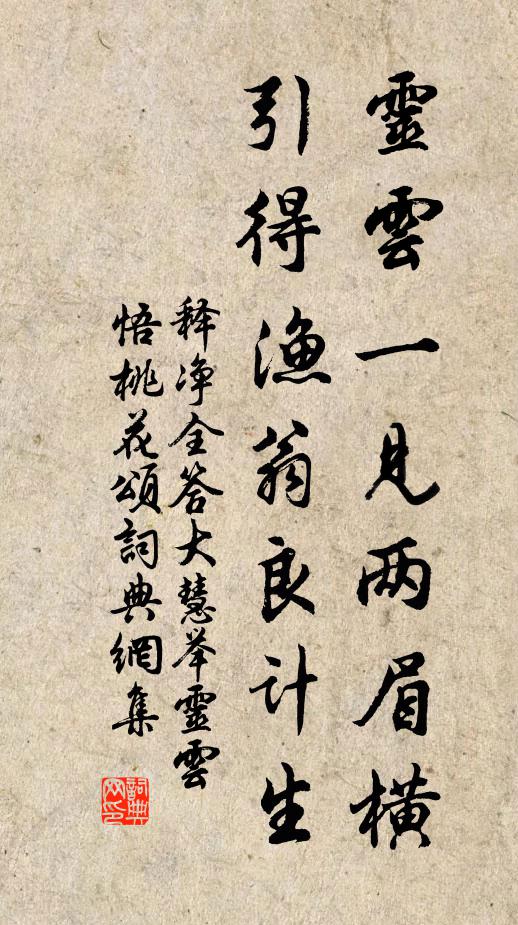 靈雲一見两眉橫
引得漁翁良計生
释净全答大慧举靈雲
悟桃花頌詞典網集
詞典网印